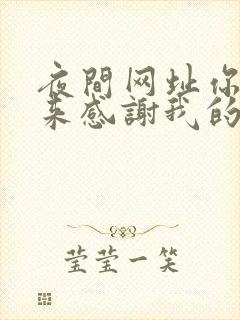 夜間网址你
来感謝我的
莹莹一笑